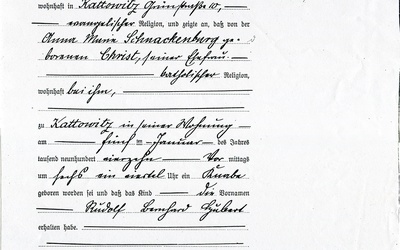 wohnhaft in Kattowitz Grünstraße 10,
evangelischer Religion, und zeigte an, daß von der
Anna Maria Schnackenberg ge-
borenen Christ, seiner Ehefrau
katholischer Religion,
wohnhaft bei ihm,
zu Kattowitz in seiner Wohnung
am fünf ten Januar des Jahres
tausend neunhundert vierzehn Vor mittags
um sechs ein viertel Uhr ein Knabe
geboren worden sei und daß das Kind die Vornamen
Rudolf Bernhard Hubert
erhalten habe.